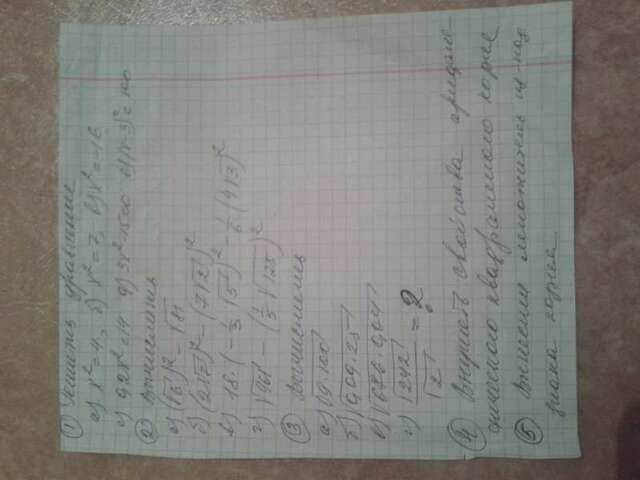 ① Решить уравнения
а) x²=4, б) x²=7, в) x²=-16
г) 0,2x²=14 д) 3x²-1500 е) (x-3)²=100
② Вычислить
а) (√6)²-√81
б) (2√7)²-(7√2)²
в) 18·(-1/3 √5)²-1/6(4√3)²
г)
③ Вычислить
а)
б) √0,09·25
в) √676·0,04
г) √242/√2=?
④ Выучить свойства арифме-
тического квадратного корня
⑤ Вынесем множитель из-под
знака корня